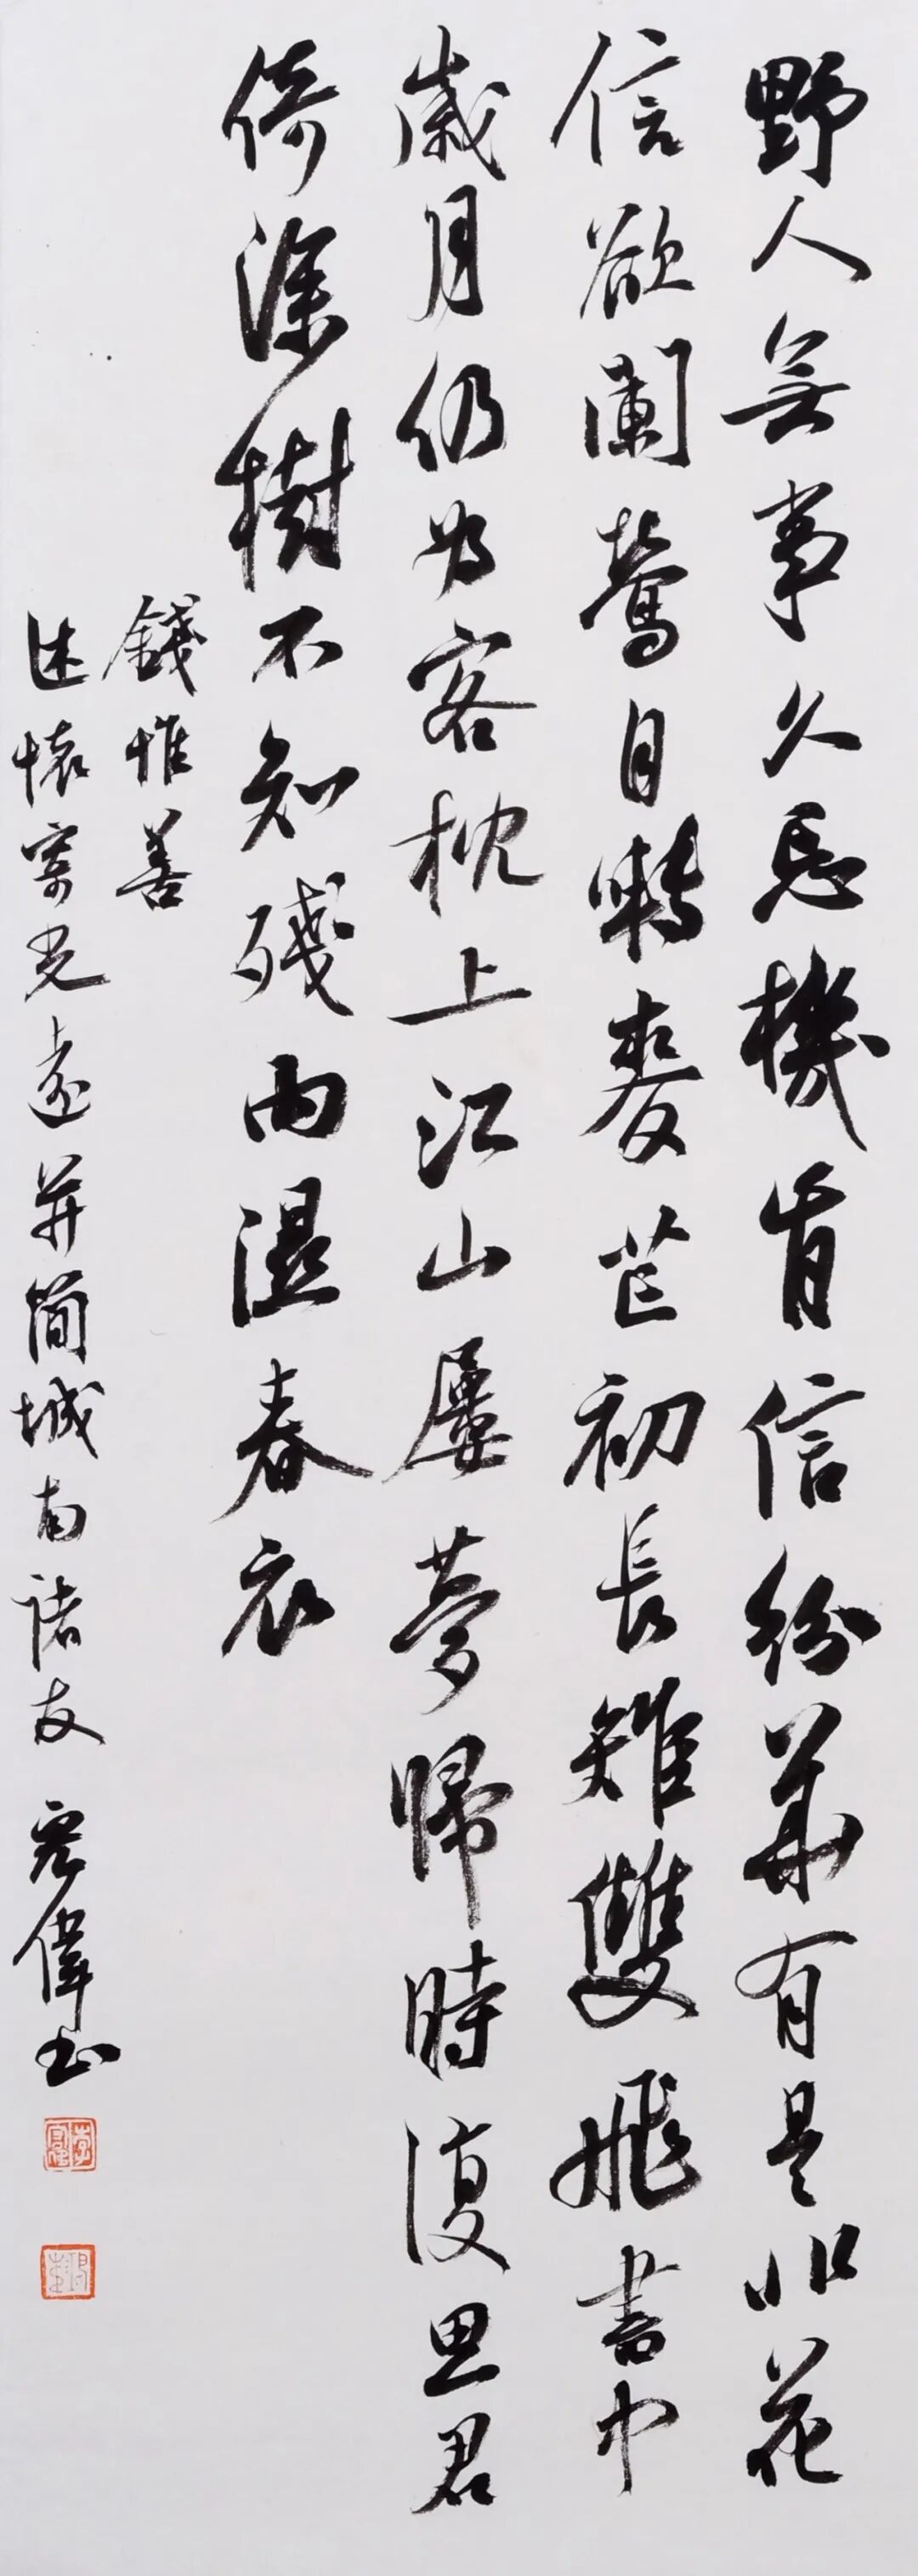 野人無事久忘機肯信紛華有是非花
信欲闌鶯自囀麥芒初長雉雙飛書中
歲月仍為客枕上江山屢夢歸時復思君
倚深樹不知殘雨濕春衣
錢惟善
述懷寄光遠并簡城南諸友 偉書